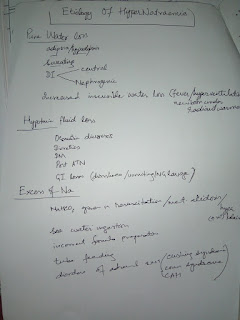 Etiology Of HyperNatraemia
Pure Water loss
adipsia/hypodipsia
Sweating
DI central
Nephrogenic
increased insensible water loss (fever/hyperventilation
newborn under
radiant warmer
Hypotonic fluid loss
Osmotic diuresis
Diuretics
DM
Post ATN
GI loss (diarrhoea/vomiting/NG lavage)
Excess of Na
NaHCO3 given in resuscitation/met acidosis/hyper
Sea water ingestion
incorrect formula preparation
tube feeding
disorders of adrenal axis/cushing syndrome
conn syndrome
CAH